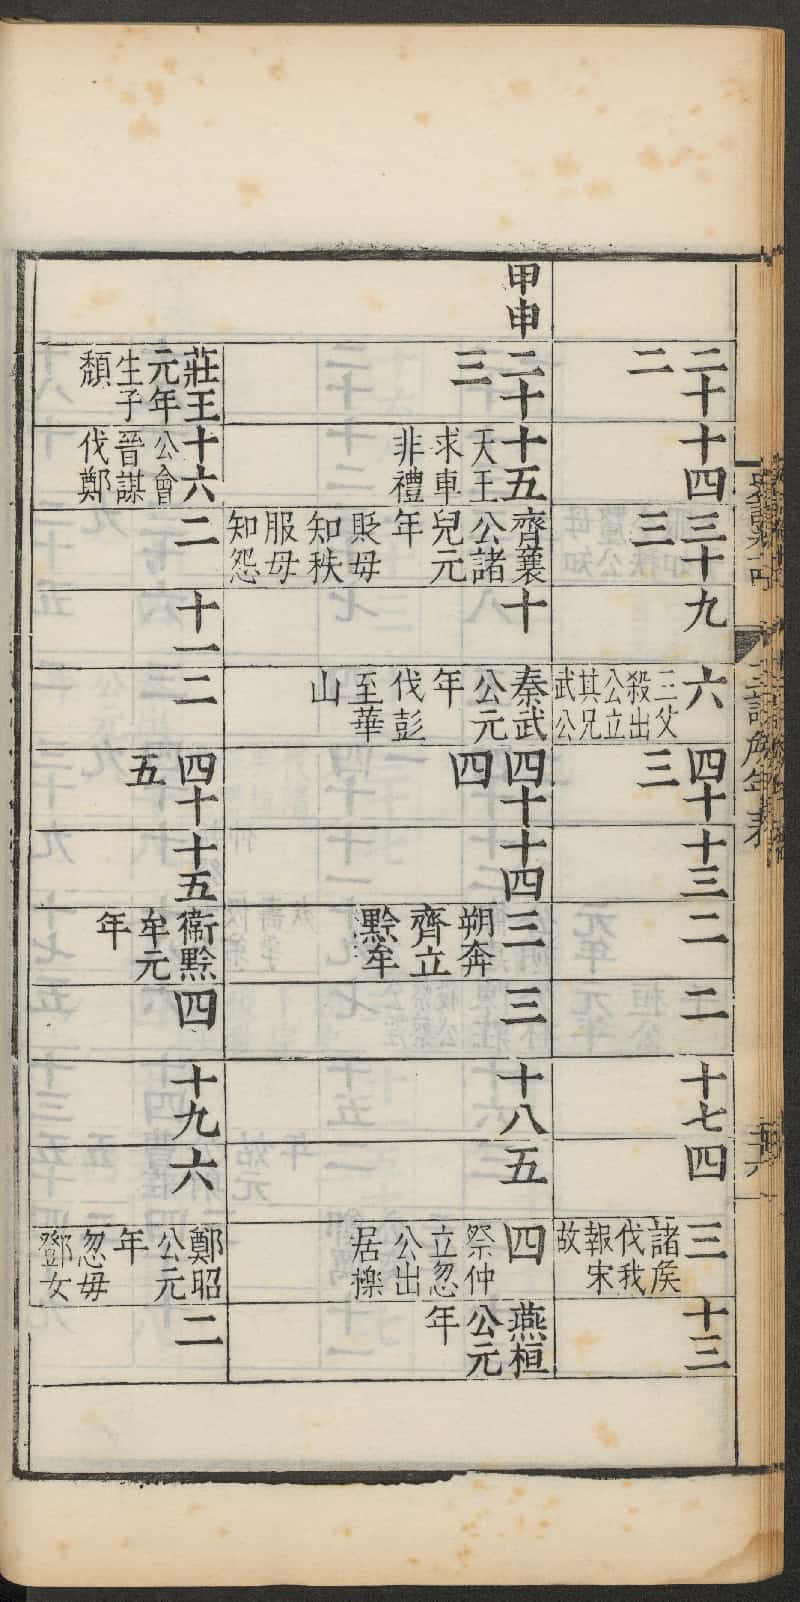 二十
二
十四
三十
三
九
六
三父
殺出
公立
其兄
武公
四十
三
十三
二
二
十七
四
三
諸矦
伐我
報宋
故
十三
甲申
二十
三
十五
天王
求車
非禮
齊襄
公諸
兒元
年
貶毋
知秩
服毋
知怨
十
秦武
公元
年
伐彭
至華
山
四十
四
十四
三
朔奔
齊立
黔牟
三
十八
五
四
祭仲
立忽
公出
居櫟
燕桓
公元
年
莊王
元年
生子
頹
十六
公會
晉謀
伐鄭
二
十一
二
四十
五
十五
衞黔
牟元
年
四
十九
六
鄭昭
公元
年
忽母
鄧女
二